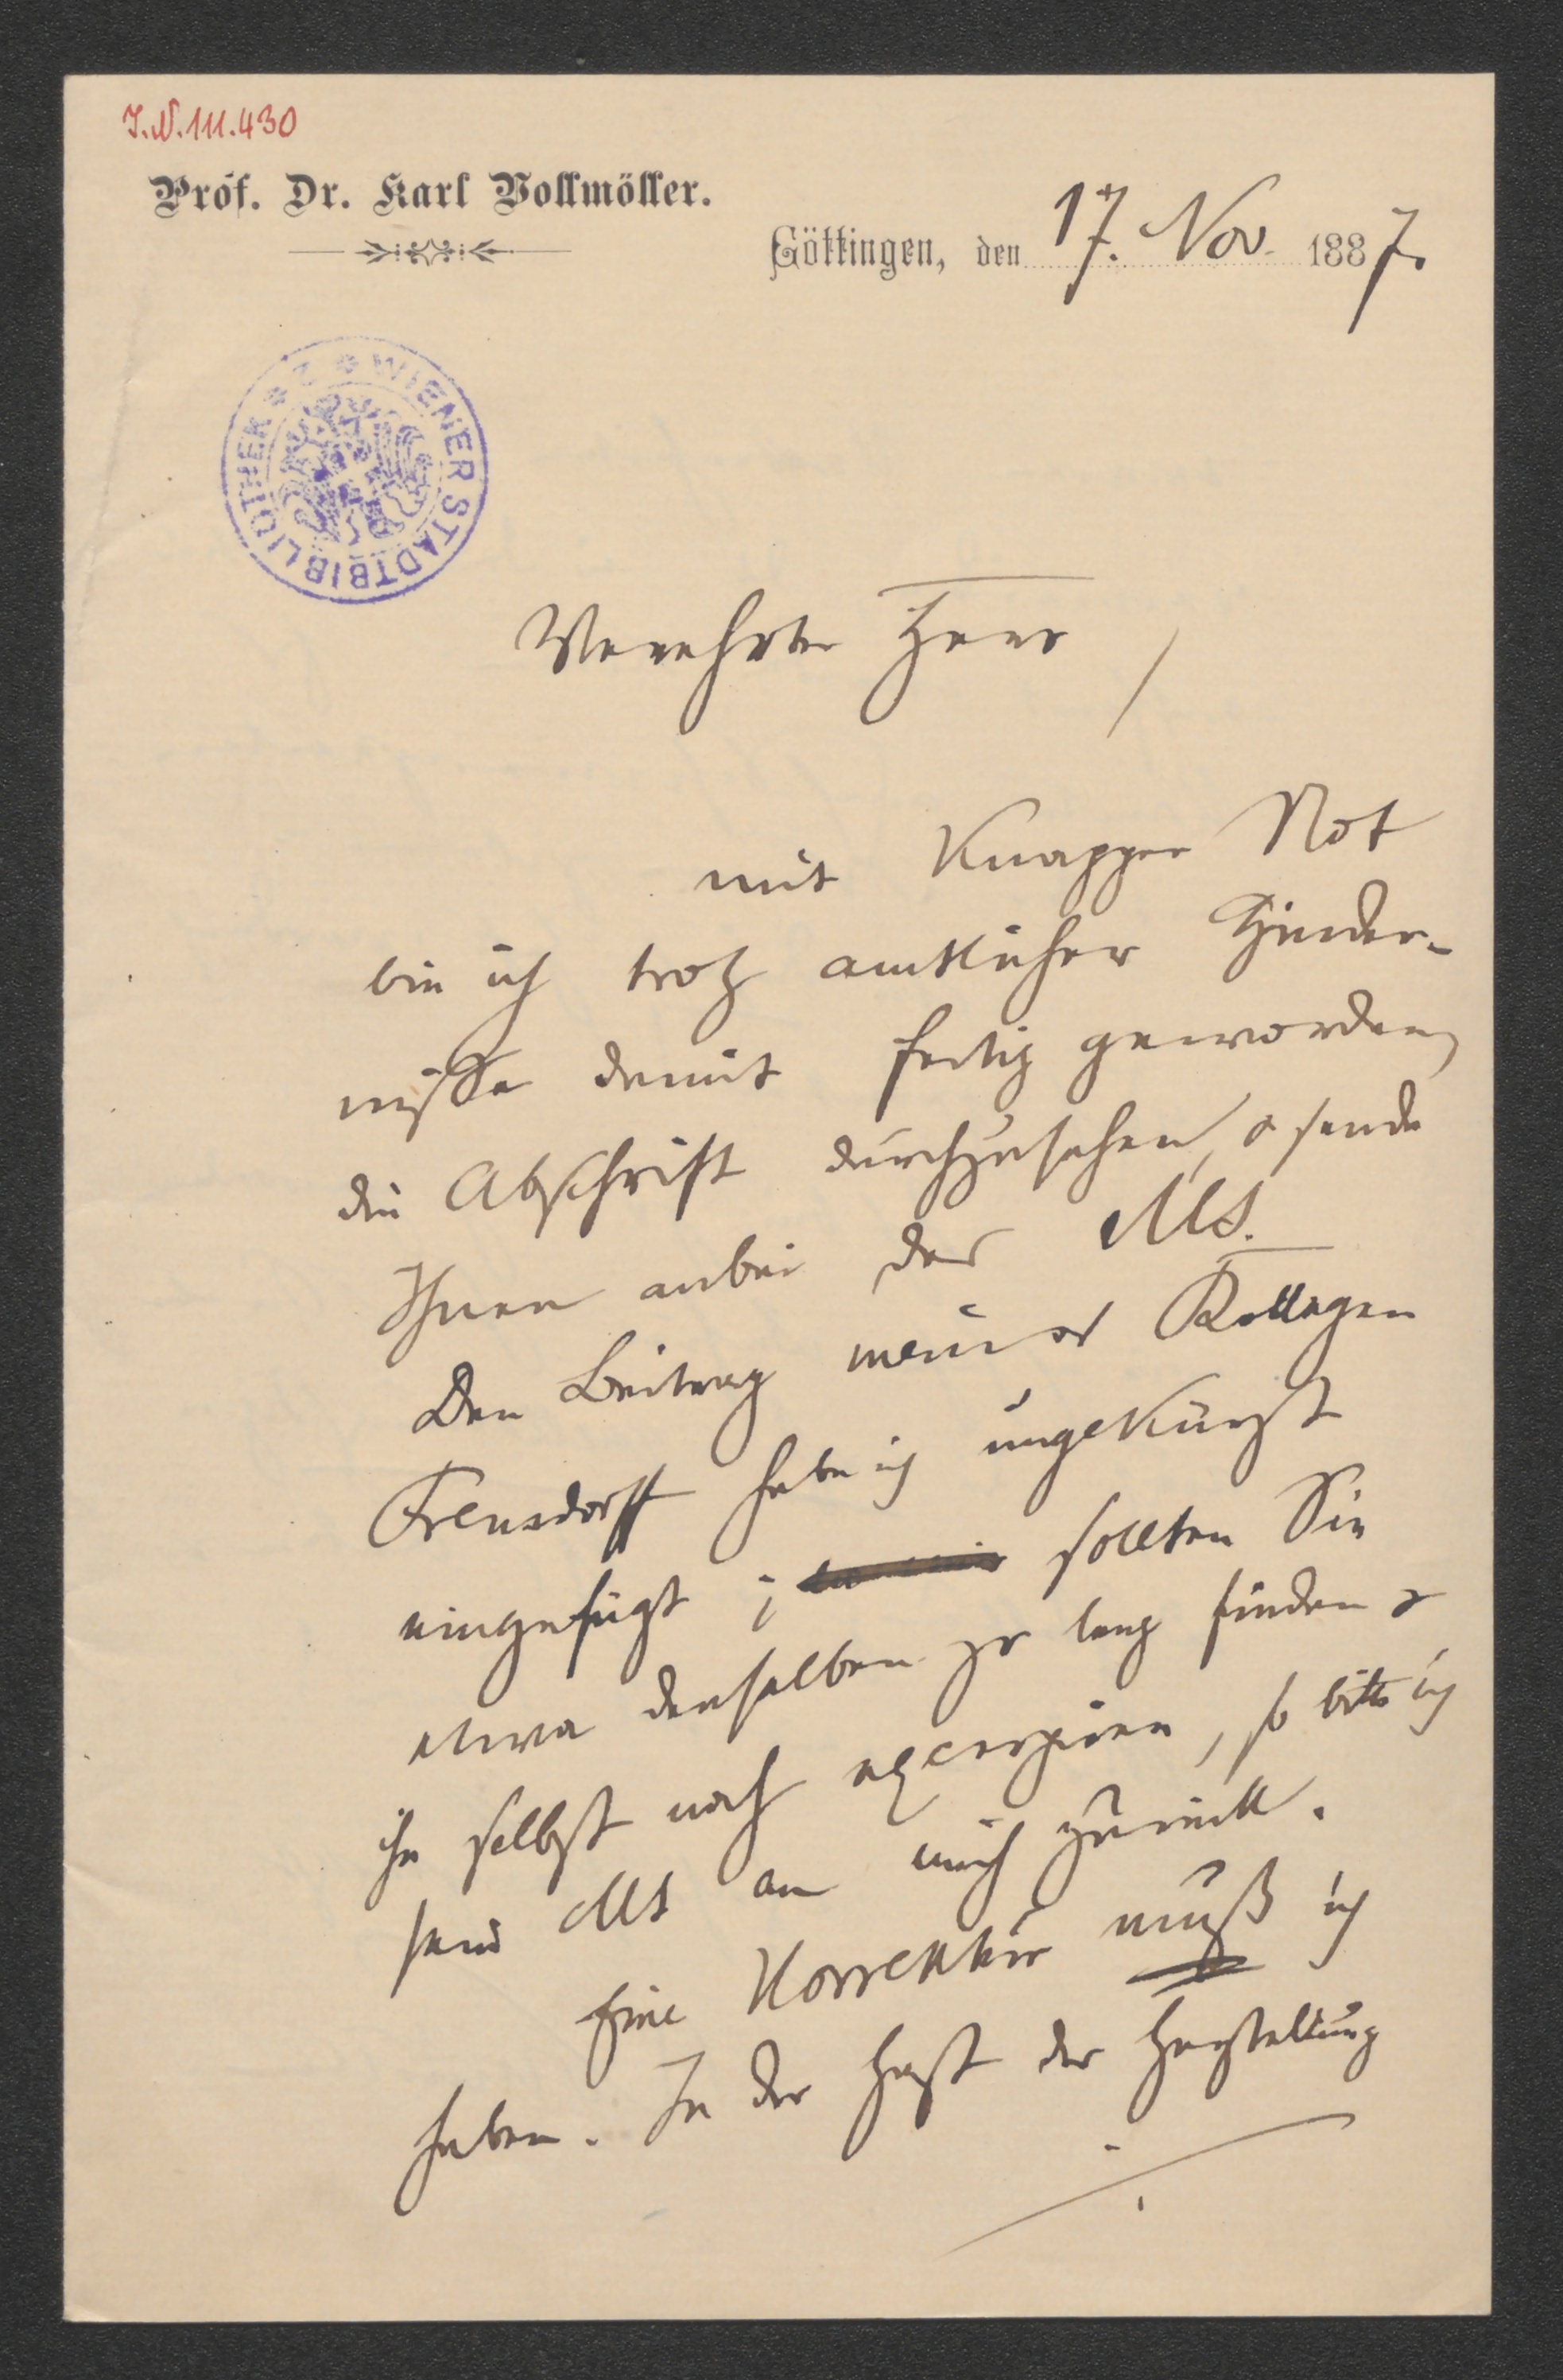 I.N. 111.430
Prof. Dr. Karl Vollmöller.
Göttingen, den 17. Nov. 1887.
WIENER STADTBIBLIOTHEK
Verehrter Herr,
mit knapper Not
bin ich trotz amtlicher Hinder-
nisse damit fertig geworden,
die Abschrift durchzusehen, & sende
Ihnen anbei das Ms.
Den Beitrag meines Kollegen
Frensdorff habe ich ungekürzt
eingefügt; sollten Sie
etwa denselben zu lang finden &
ihn selbst noch exzerpiren, so bitte ich
sein Ms an mich zurück.
Eine Korrektur muß ich
haben. In der Hast der Herstellung